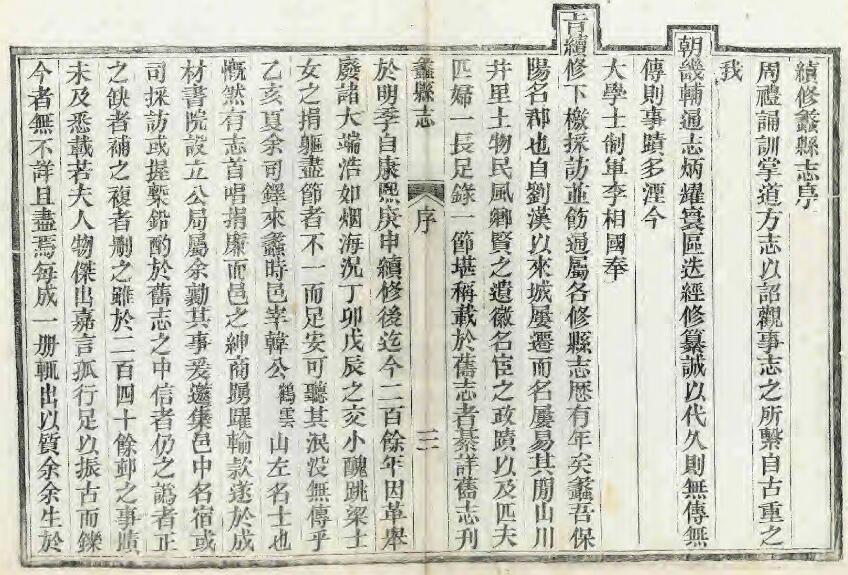 續修蠡縣志序
周禮誦訓掌道方志以詔觀事志之所繫自古重之
我
朝畿輔通志炳耀寰區迭經修纂誠以代久則無傳無
傳則事蹟多湮今
大學士制軍李相國奉
旨續修下檄採訪並飭通屬各修縣志歷有年矣蠡吾保
陽名郡也自劉漢以來城屢遷而名屢易其間山川
井里土物民風鄉賢之遺徽名宦之政蹟以及匹夫
匹婦一長足錄一節堪稱載於舊志者綦詳舊志刋
蠡縣志
序
三
於明季自康熙庚申續修後迄今二百餘年因革舉
廢諸大端浩如烟海況丁卯戊辰之交小醜跳梁士
女之捐軀盡節者不一而足安可聽其泯没無傳乎
乙亥夏余司鐸來蠡時邑宰韓公鶴雲山左名士也
慨然有志首唱捐廉而邑之紳商踴躍輸款遂於成
材書院設立公局屬余勷其事爰邀集邑中名宿或
司採訪或握槧鉛酌於舊志之中信者仍之譌者正
之缺者補之複者刪之雖於二百四十餘邨之事蹟
未及悉載若夫人物傑出嘉言孤行足以振古而鑠
今者無不詳且盡焉每成一册輒出以質余余生於